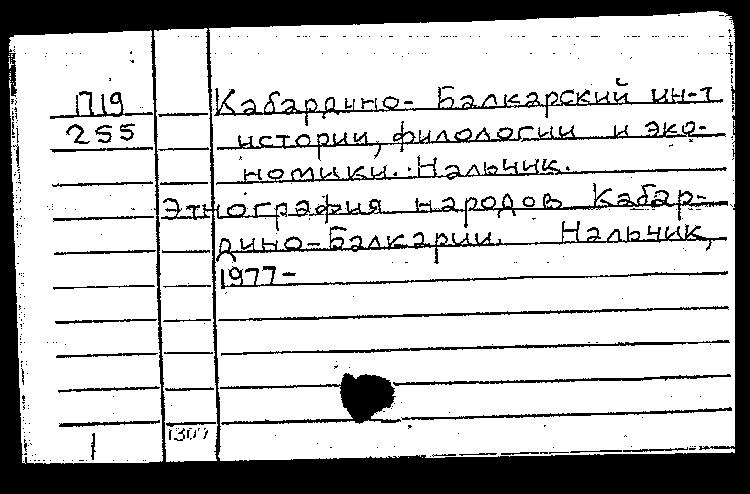 П19 Кабардино- Балкарский ин-т
255 истории, филологии и эко-
номики. Нальчик.
Этнография народов Кабар-
дино-Балкарии. Нальчик,
1977-
1
1307